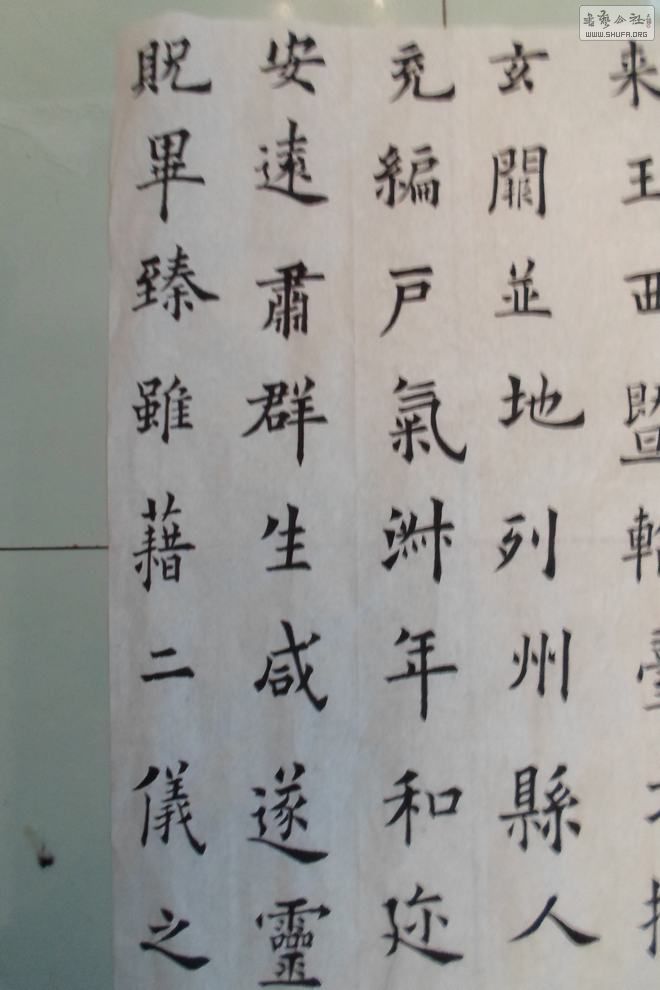 書藝公社
WWW.SHUFA.ORG
来王西暨輪臺
玄闕並地列州縣人
充編戸氣淑年和迩
安遠肅群生咸遂靈
貺畢臻雖藉二儀之